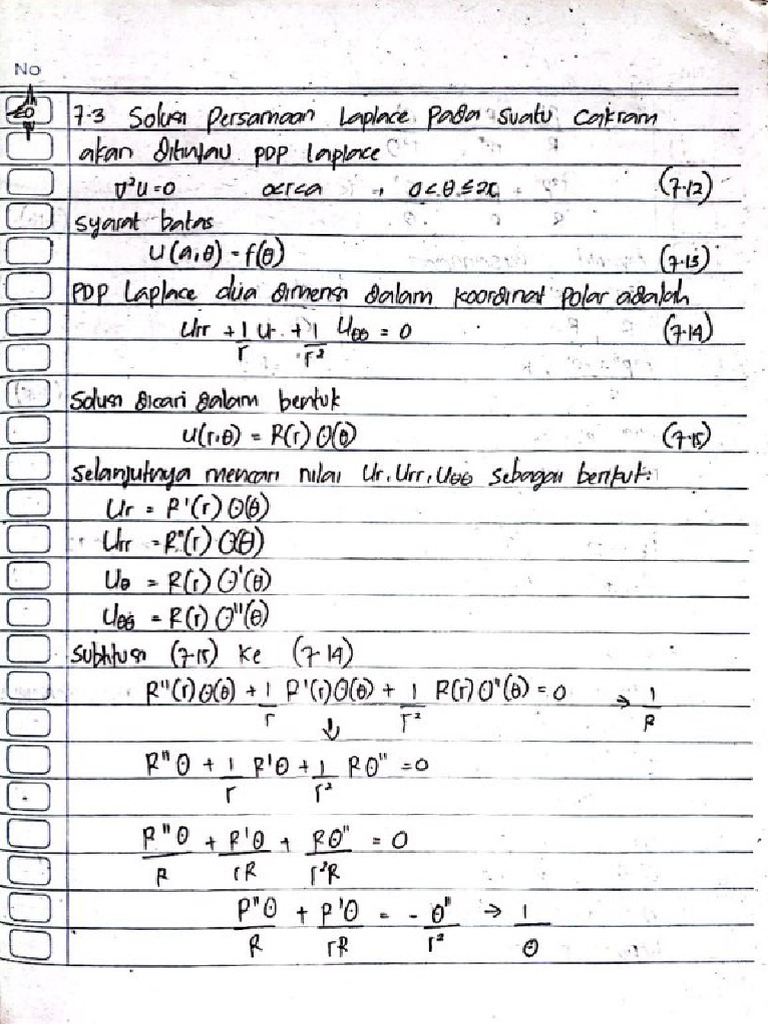 No
7.3 Solusi Persamaan Laplace pada suatu cakram
akan ditinjau PDP laplace
∇²u = 0 0<r<a , 0<θ≤2π (7.12)
syarat batas
u(a,θ) = f(θ) (7.13)
PDP Laplace dua dimensi dalam koordinat Polar adalah
Urr + 1/r Ur + 1/r² Uθθ = 0 (7.14)
Solusi dicari dalam bentuk
u(r,θ) = R(r) Θ(θ) (7.15)
Selanjutnya mencari nilai Ur, Urr, Uθθ sebagai berikut:
Ur = R'(r) Θ(θ)
Urr = R"(r) Θ(θ)
Uθ = R(r) Θ'(θ)
Uθθ = R(r) Θ"(θ)
Subtitusi (7-15) ke (7-14)
R"(r) Θ(θ) + 1/r R'(r) Θ(θ) + 1/r² R(r) Θ"(θ) = 0 → 1/R
↓
R"Θ + 1/r R'Θ + 1/r² RΘ" = 0
R"Θ/R + R'Θ/rR + RΘ"/r²R = 0
R"Θ/R + R'Θ/rR = - Θ"/r² → 1/Θ